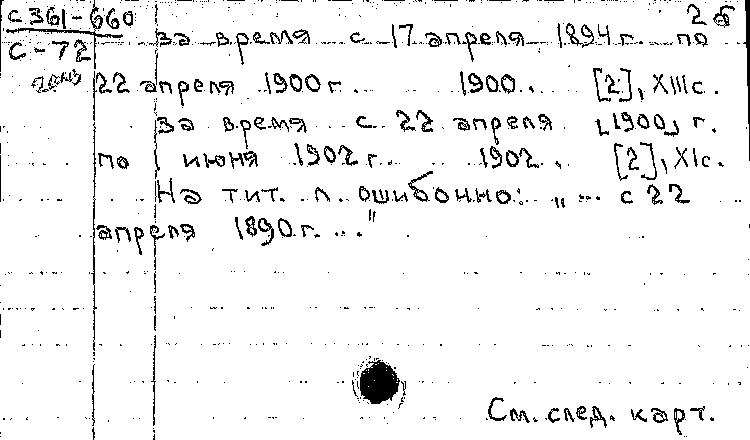 с 361-660
2 б
за время с 17 апреля 1894 г. по
С-72
22 апреля 1900 г. .. 1900. [2], XIII с.
за время с 22 апреля [1900] г.
по 1 июня 1902 г. .. 1902. [2], XI с.
На тит. л. ошибочно: "... с 22
апреля 1890 г. ..."
См. след. карт.